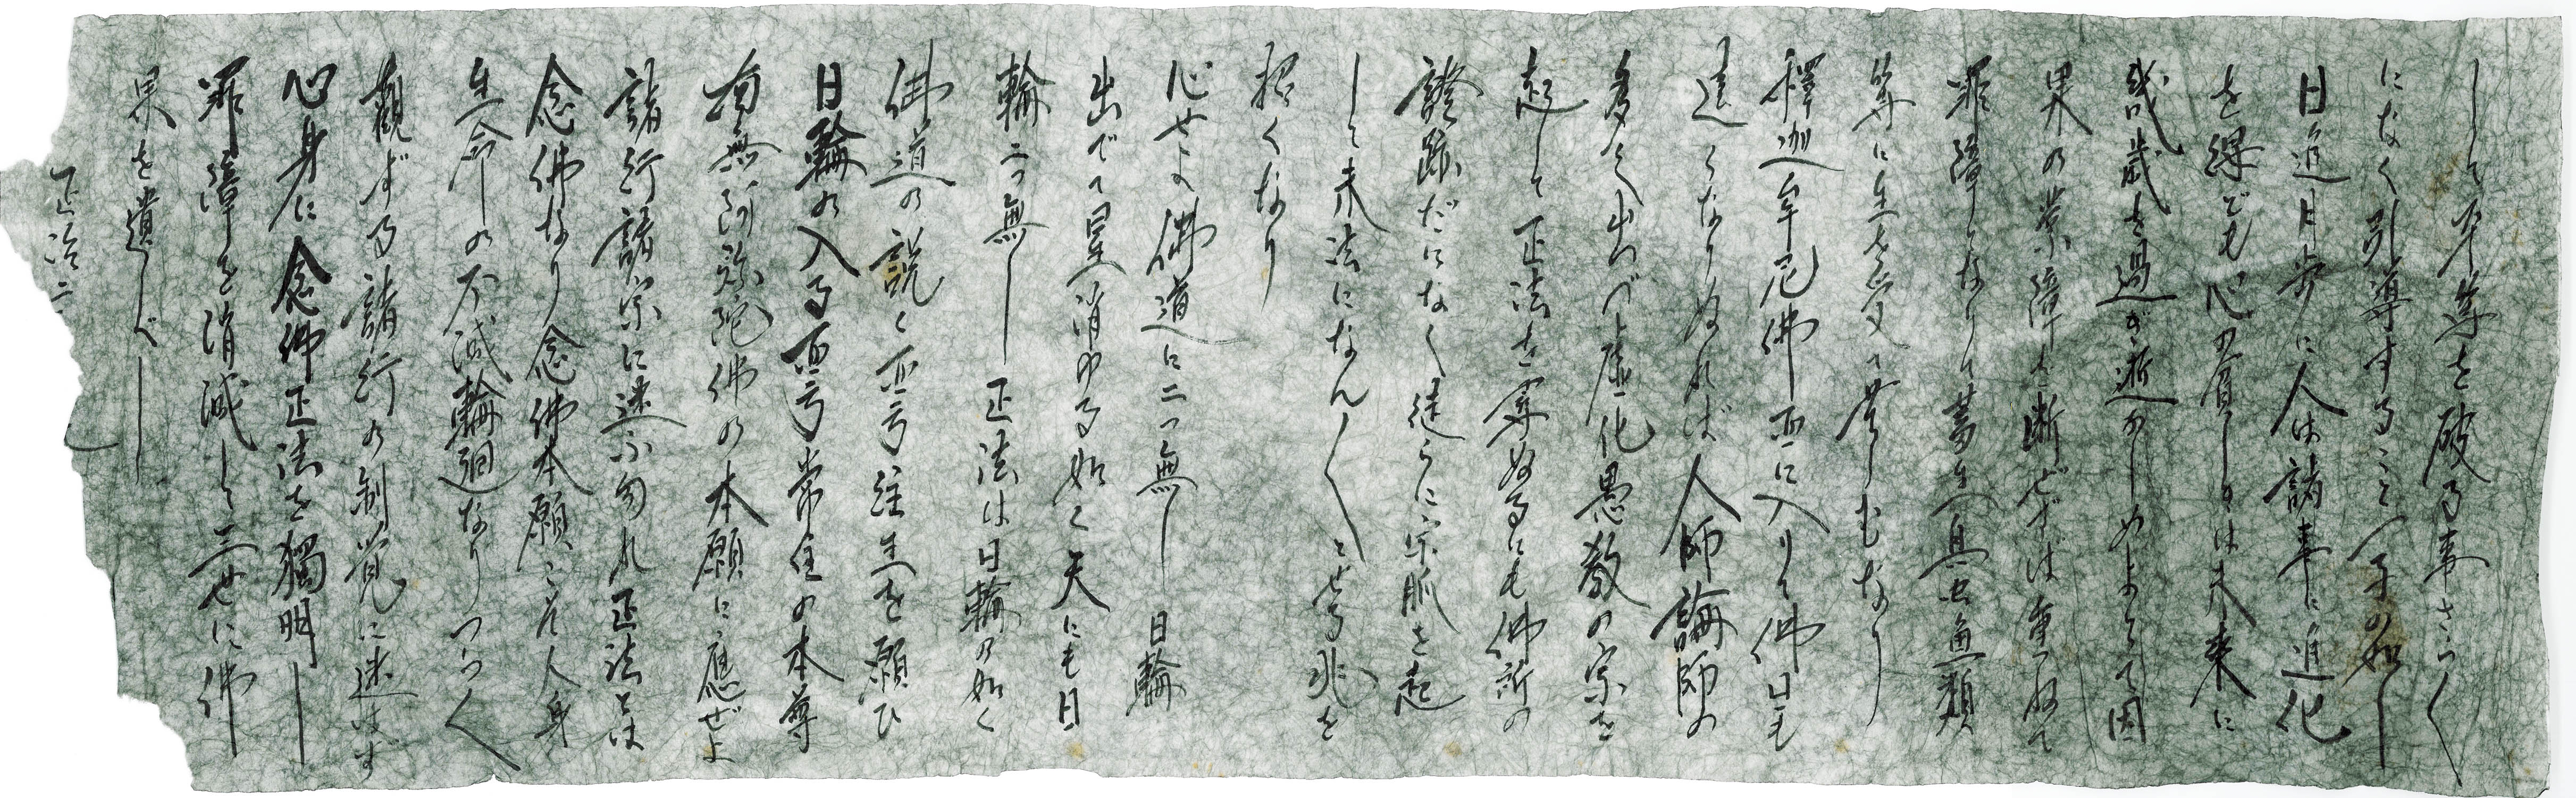 して尊を破る事さらく
になく引導すること一子の如し
日進月歩に人は諸事に進化
を経ても心の盲しきは未来に
歳を過が逝かしめよりて因
果の業障を断ぜずば重ねて
罪障となりて畜生昆虫魚類
等に生を受て苦しむなり
釋迦牟尼佛西に入りて佛日も
遠くなりぬれば人師論師の
多く出でゝ虚化愚教の宗を
起して正法を尋ぬるにも佛所の
證跡だになく徒らに宗脈を起
して末法になん〱とせる兆を
招くなり
心せよ佛道に二つ無し 日輪
出でて星消ゆる如く天にも日
輪二つ無し 正法は日輪の如く
佛道の説く西方往生を願ひ
日輪の入る西方常住の本尊
南無阿弥陀佛の本願に應ぜよ
諸行諸宗に迷ふ勿れ正法とは
念佛なり念佛本願こそ人身
生命の不滅輪廻なりつゝく
観ずる諸行の制覚に迷はず
心身に念佛正法を獨明し
罪障を消滅して三世に佛
果を遺しべし
正治二